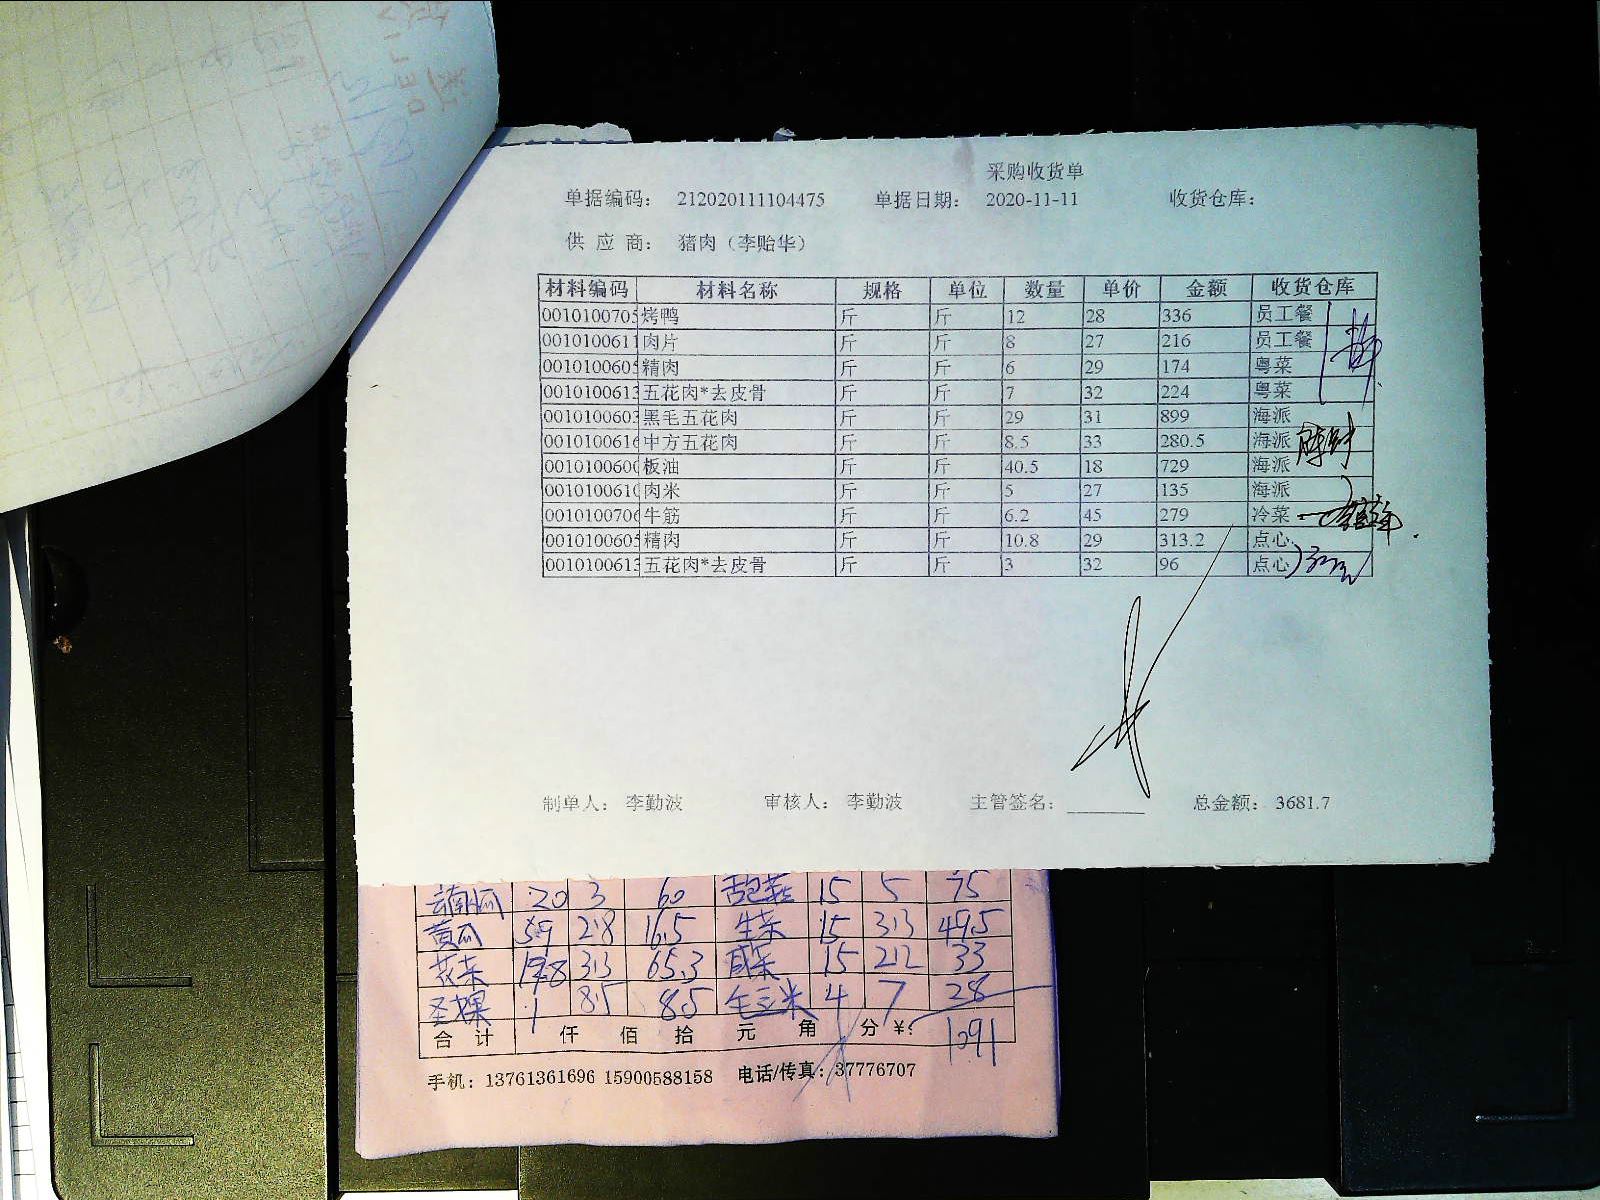 采购收货单
单据编码： 212020111104475 单据日期： 2020-11-11 收货仓库：
供 应 商： 猪肉（李贻华）
材料编码 材料名称 规格 单位 数量 单价 金额 收货仓库
0010100705 烤鸭 斤 斤 12 28 336 员工餐
0010100611 肉片 斤 斤 8 27 216 员工餐
0010100605 精肉 斤 斤 6 29 174 粤菜
0010100613 五花肉*去皮骨 斤 斤 7 32 224 粤菜
0010100603 黑毛五花肉 斤 斤 29 31 899 海派
0010100616 中方五花肉 斤 斤 8.5 33 280.5 海派
0010100600 板油 斤 斤 40.5 18 729 海派
0010100610 肉米 斤 斤 5 27 135 海派
0010100706 牛筋 斤 斤 6.2 45 279 冷菜
0010100605 精肉 斤 斤 10.8 29 313.2 点心
0010100613 五花肉*去皮骨 斤 斤 3 32 96 点心
制单人： 李勤波 审核人： 李勤波 主管签名： 总金额： 3681.7
南瓜 20 3 60 15 5 75
黄瓜 5.9 2.8 16.5 生菜 15 3.3 49.5
花菜 19.8 3.3 65.3 咸菜 15 2.2 33
圣果 1 8.5 8.5 玉米 4 7 28
合 计 仟 佰 拾 元 角 分 ¥： 1091
手机：13761361696 15900588158 电话/传真：37776707